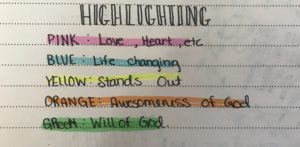 HIGHLIGHTING
PINK: Love, Heart, etc
BLUE: Life changing
YELLOW: Stands Out
ORANGE: Awesomeness of God
GREEN: Will of God.